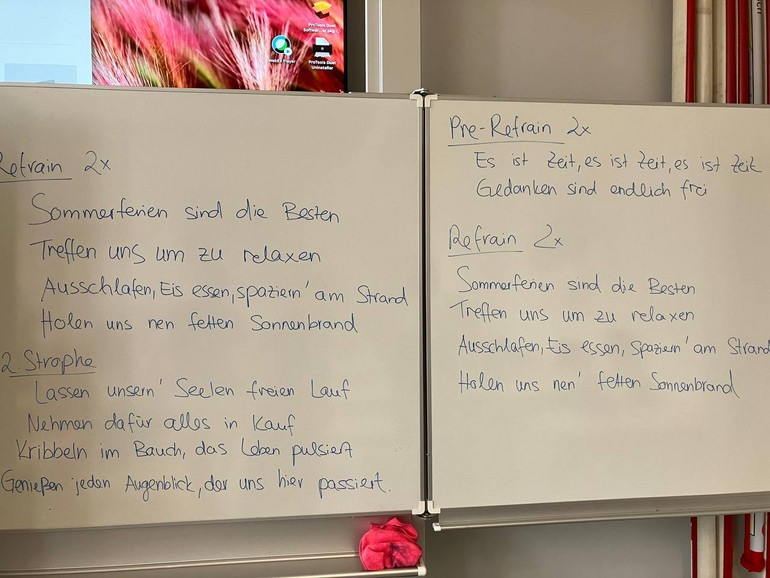 ProTools Dust
Uninstaller
Refrain 2x
Sommerferien sind die Besten
Treffen uns um zu relaxen
Ausschlafen, Eis essen, spaziern' am Strand
Holen uns nen fetten Sonnenbrand
2. Strophe
Lassen unsern' Seelen freien Lauf
Nehmen dafür alles in Kauf
Kribbeln im Bauch, das Leben pulsiert
Genießen jeden Augenblick, der uns hier passiert.
Pre-Refrain 2x
Es ist Zeit, es ist Zeit, es ist Zeit
Gedanken sind endlich frei
Refrain 2x
Sommerferien sind die Besten
Treffen uns um zu relaxen
Ausschlafen, Eis essen, spaziern' am Strand
Holen uns nen' fetten Sonnenbrand